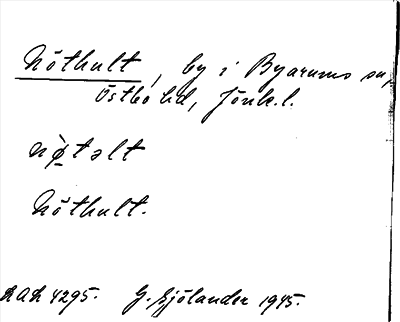 Nöthult, by i Byarums sn,
Östbo hd, Jönk.l.
nø̀təlt
Nöthult.
RAÄ 4295. G. Sjölander 1945.